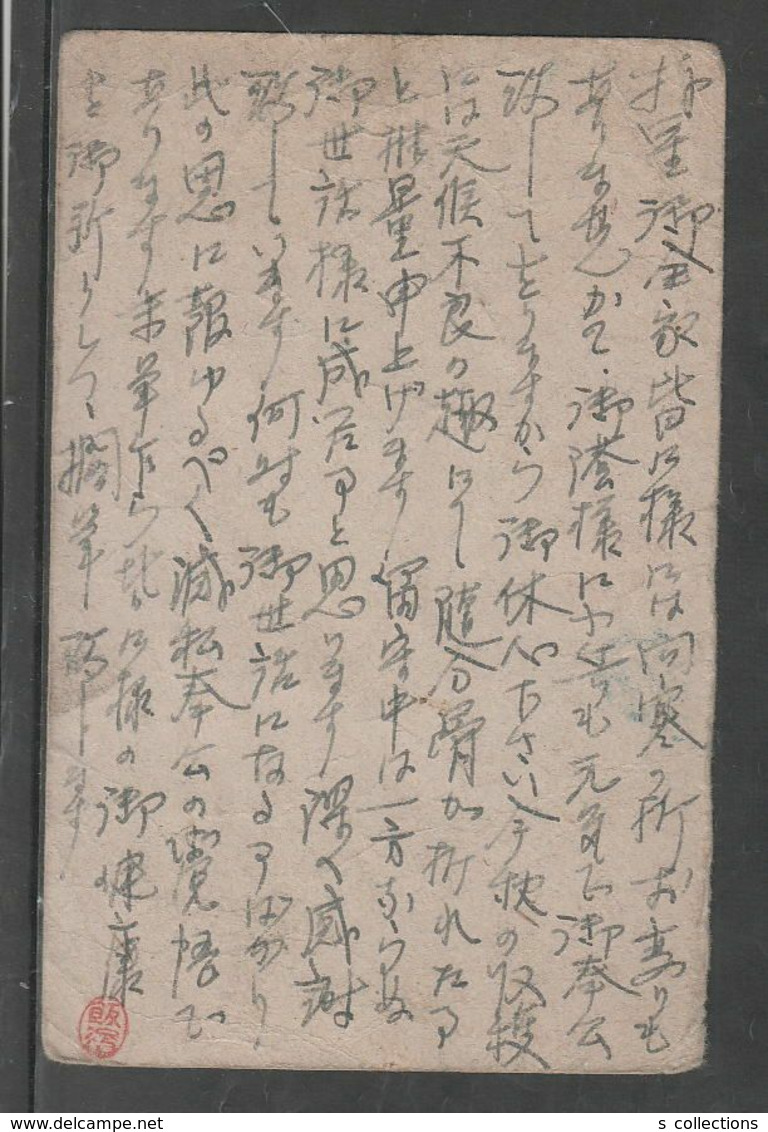 拝呈御全家皆々様には向寒の折お変りも
ありませんかで、御蔭様に小生も元気で御奉公
致してをりますから御休心ださい今秋の収穫
には天候不良の趣にて随分骨が折れたる事
と推量申上げます留守中は一方ならぬ
御世話様に成居る事と思ひます深く感謝
致しています何時も御世話になる事ばかり
此の恩に報ゆるべく滅私奉公の覚悟で
あります末筆乍ら皆々様の御健康
を御祈りしつゝ擱筆致します
s collections
delcampe.net